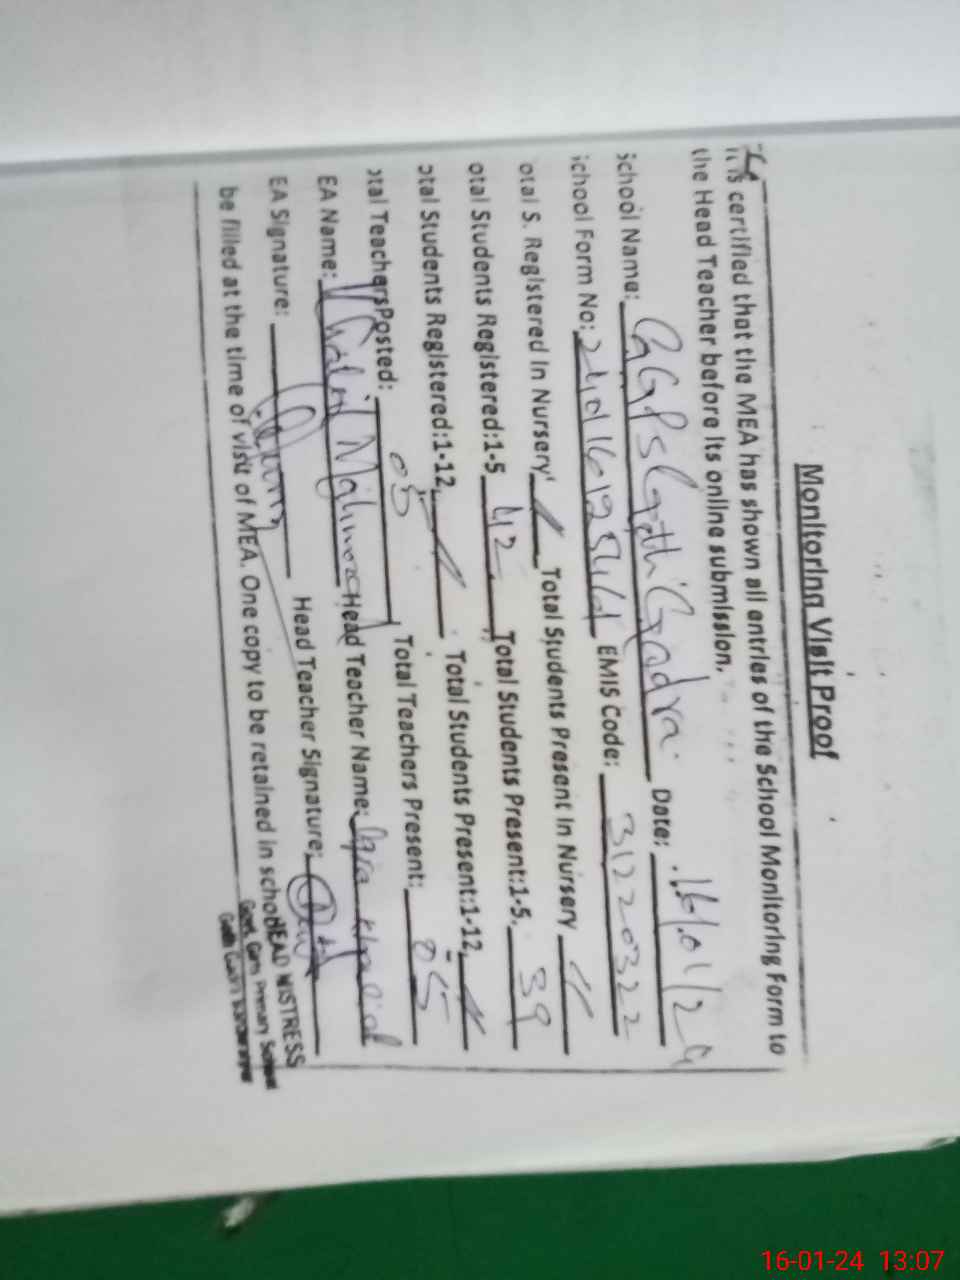 Monitoring Visit Proof
It is certified that the MEA has shown all entries of the School Monitoring Form to
the Head Teacher before its online submission.
School Name: GGPS Goth Gadra Date: 16/01/24
School Form No: EMIS Code: 31220322
otal S. Registered In Nursery Total Students Present In Nursery
otal Students Registered:1-5 42 Total Students Present:1-5, 39
otal Students Registered:1-12, Total Students Present:1-12,
otal Teachers Posted: 05 Total Teachers Present: 05
EA Name: Mahmood Head Teacher Name: Khalid
EA Signature: Head Teacher Signature:
be filled at the time of visit of MEA. One copy to be retained in school
HEAD MISTRESS
Govt. Girls Primary School
16-01-24 13:07